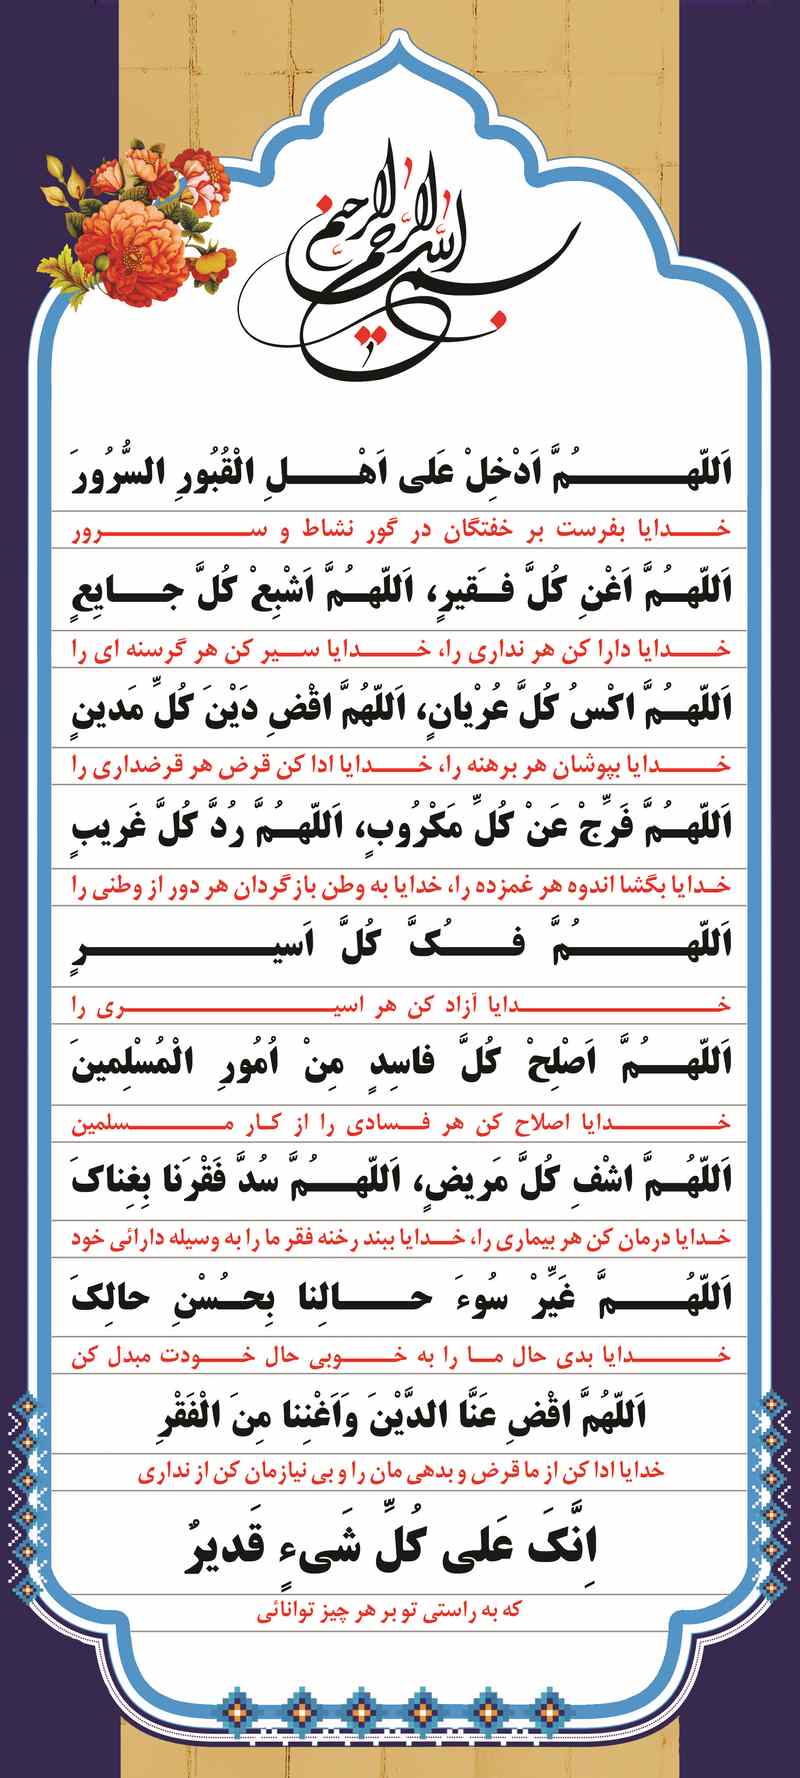 بسم الله الرحمن الرحیم
اَللّهُمَّ اَدْخِلْ عَلی اَهْلِ الْقُبُورِ السُّرُورَ
خدایا بفرست بر خفتگان در گور نشاط و سرور
اَللّهُمَّ اَغْنِ کُلَّ فَقیرٍ، اَللّهُمَّ اَشْبِعْ کُلَّ جایِعٍ
خدایا دارا کن هر نداری را، خدایا سیر کن هر گرسنه ای را
اَللّهُمَّ اکْسُ کُلَّ عُرْیانٍ، اَللّهُمَّ اقْضِ دَیْنَ کُلِّ مَدینٍ
خدایا بپوشان هر برهنه را، خدایا ادا کن قرض هر قرضداری را
اَللّهُمَّ فَرِّجْ عَنْ کُلِّ مَکْرُوبٍ، اَللّهُمَّ رُدَّ کُلَّ غَریبٍ
خدایا بگشا اندوه هر غمزده را، خدایا به وطن بازگردان هر دور از وطنی را
اَللّهُمَّ فُکَّ کُلَّ اَسیرٍ
خدایا آزاد کن هر اسیری را
اَللّهُمَّ اَصْلِحْ کُلَّ فاسِدٍ مِنْ اُمُورِ الْمُسْلِمینَ
خدایا اصلاح کن هر فسادی را از کار مسلمین
اَللّهُمَّ اشْفِ کُلَّ مَریضٍ، اَللّهُمَّ سُدَّ فَقْرَنا بِغِناکَ
خدایا درمان کن هر بیماری را، خدایا ببند رخنه فقر ما را به وسیله دارائی خود
اَللّهُمَّ غَیِّرْ سُوءَ حالِنا بِحُسْنِ حالِکَ
خدایا بدی حال ما را به خوبی حال خودت مبدل کن
اَللّهُمَّ اقْضِ عَنَّا الدَّیْنَ وَاَغْنِنا مِنَ الْفَقْرِ
خدایا ادا کن از ما قرض و بدهی مان را و بی نیازمان کن از نداری
اِنَّکَ عَلی کُلِّ شَیءٍ قَدیرٌ
که به راستی تو بر هر چیز توانائی